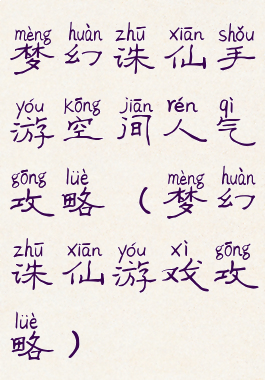 mèng huàn zhū xiān shǒu
梦幻诛仙手
yóu kōng jiān rén qì
游空间人气
gōng lüè mèng huàn
攻略（梦幻
zhū xiān yóu xì gōng
诛仙游戏攻
lüè
略）